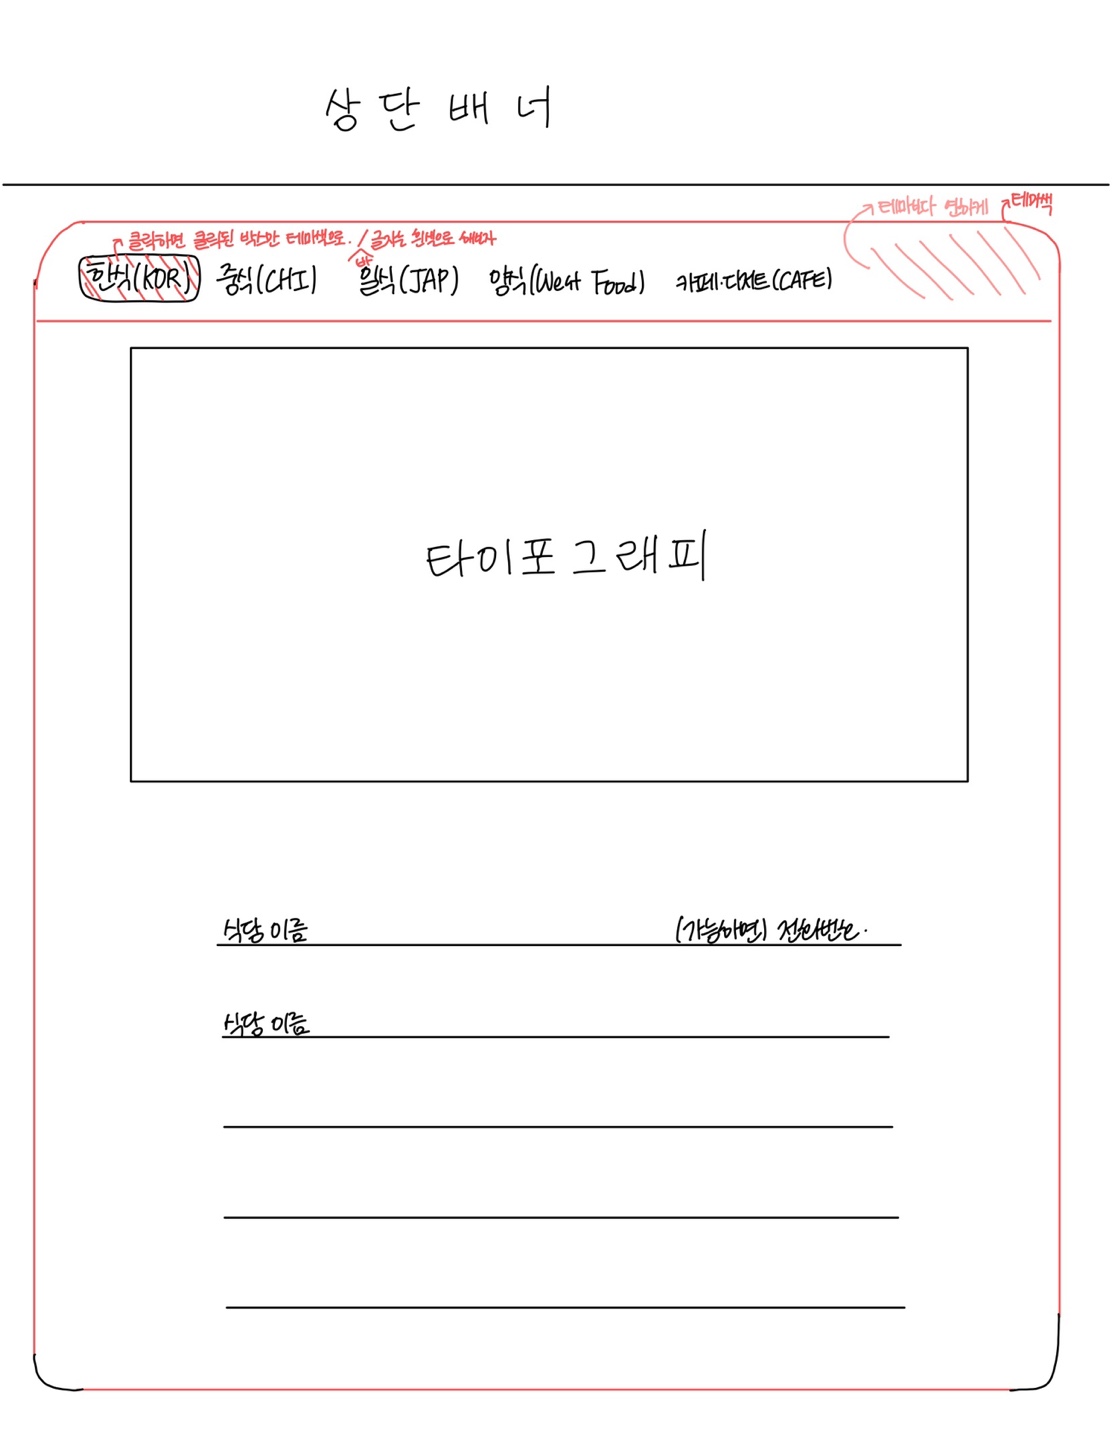 상단배너
테마보다 연하게
테마색
클릭하면 클릭된 박스만 테마색으로. / 글자는 흰색으로
바
한식(KOR) 중식(CHI) 일식(JAP) 양식(West Food) 카페·디저트(CAFE)
타이포그래피
식당 이름 (가능하면) 전화번호.
식당 이름